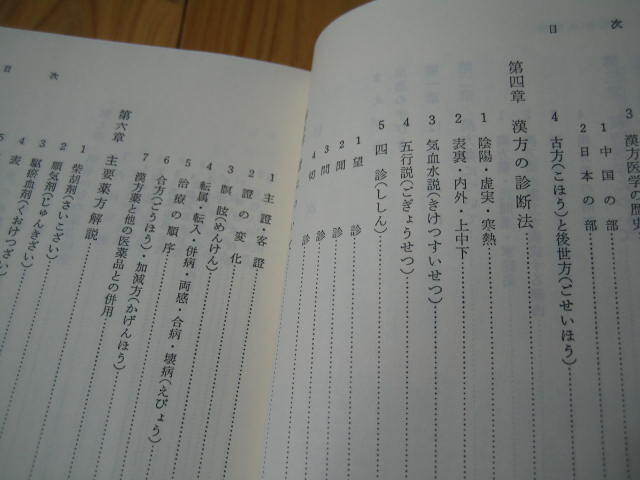 目次
3 漢方医学の歴史
1 中国の部
2 日本の部
4 古方（こほう）と後世方（こせいほう）
第四章 漢方の診断法
1 陰陽・虚実・寒熱
2 表裏・内外・上中下
3 気血水説（きけつすいせつ）
4 五行説（ごぎょうせつ）
5 四診（ししん）
1 望診
2 聞診
3 問診
4 切診
目次
1 主證・客證
2 證の変化
3 瞑眩（めんけん）
4 転属・転入・併病・両感・合病・壊病（えびょう）
5 治療の順序
6 合方（ごうほう）・加減方（かげんほう）
7 漢方薬と他の医薬品との併用
第六章 主要薬方解説
1 柴胡剤（さいこざい）
2 順気剤（じゅんきざい）
3 駆瘀血剤（くおけつざい）
4 表
5